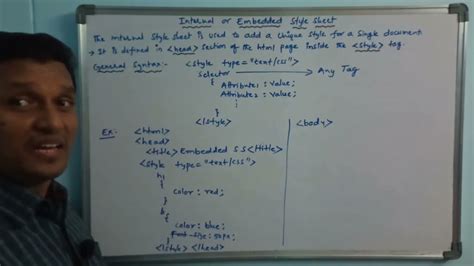 Internal or Embedded Style Sheet
The internal style sheet is used to add a unique style for a single document
→ It is defined in <head> section of the html page inside the <style> tag.
General Syntax:- <style type="text/css">
selector → Any Tag
{ Attribute1 : value;
Attribute2 : value;
}
</style>
Ex:- <html>
<head>
<title> Embedded S S </title>
<style type="text/css">
h1
{
color: red;
}
{
color: blue;
font-size: 50px;
</style> </head>
<body>